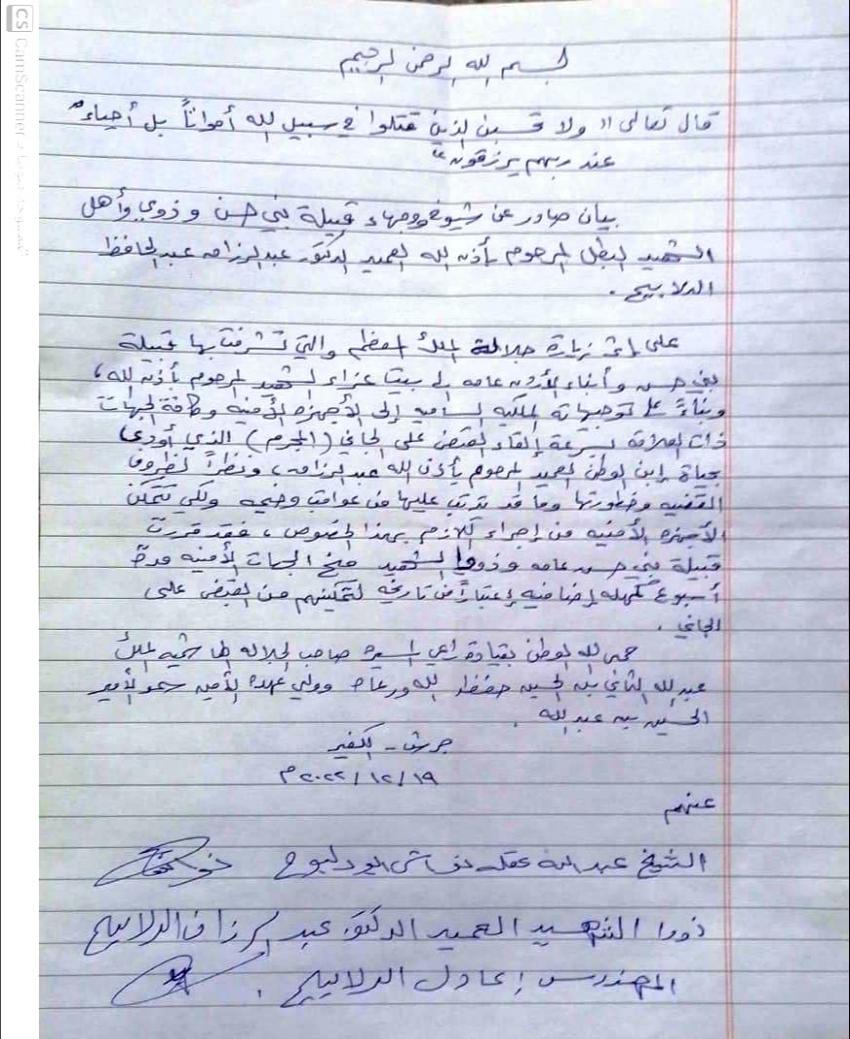 بسم الله الرحمن الرحيم
قال تعالى " ولا تحسبن الذين قتلوا في سبيل الله أمواتاً بل أحياء
عند ربهم يرزقون "
بيان صادر عن شيوخ ووجهاء قبيلة بني حسن و ذوي وأهل
الشهيد البطل المرحوم بأذن الله العميد الدكتور عبدالرزاق عبدالحافظ
الدلابيح .
على إثر زيارة جلالة الملك المعظم والتي تشرفت بها قبيلة
بني حسن وأبناء الأردن عامه الى بيت عزاء الشهيد المرحوم بأذن الله ،
وبناءً على توجيهاته الملكيه الساميه إلى الأجهزه الأمنيه وكافة الجهات
ذات العلاقة بسرعة إلقاء القبض على الجاني (المجرم) الذي أودى
بحياة إبن الوطن العميد المرحوم بأذن الله عبدالرزاق ، ونظراً لظروف
القضيه وخطورتها وما قد يترتب عليها من عواقب وخيمه ولكي تتمكن
الأجهزه الأمنيه من إجراء اللازم بهذا الخصوص ، فقد قررت
قبيلة بني حسن عامه وذووا الشهيد منح الجهات الأمنيه مدة
أسبوع كمهله إضافيه إعتباراً من تاريخه لتمكينهم من القبض على
الجاني .
حمى الله الوطن بقيادة راعي المسيره صاحب الجلاله الهاشميه الملك
عبدالله الثاني بن الحسين حفظه الله ورعاه وولي عهده الأمين سمو الأمير
الحسين بن عبدالله .
جرش - الكفير
١٩/١٢/٢٠٢٢ م
عنهم
الشيخ عبدالله عقله ابو دلبوح
ذووا الشهيد العميد الدكتور عبد الرزاق الدلابيح
المهندس إعادل الدلابيح .
CS CamScanner